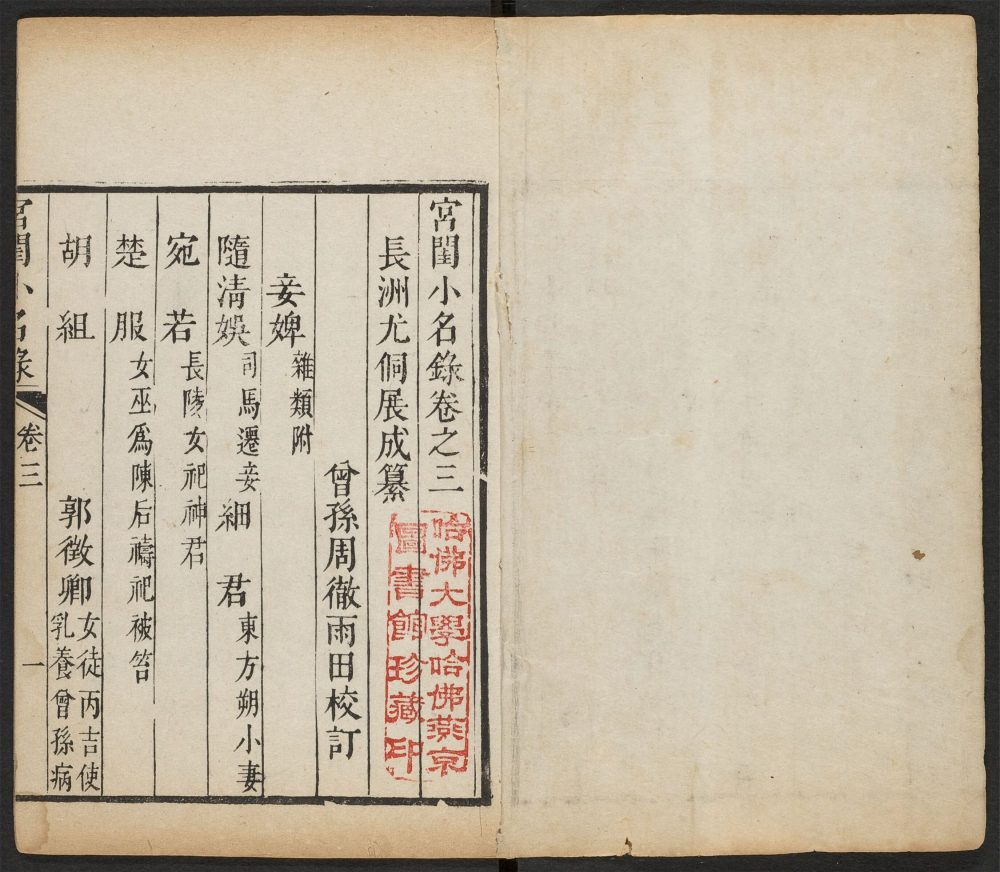 宮閨小名錄卷之三
長洲尤侗展成纂
曾孫周徹雨田校訂
妾婢雜類附
隨淸娛司馬遷妾 細君東方朔小妻
宛若長陵女祀神君
楚服女巫爲陳后禱祀被笞
胡組 郭徵卿女徒丙吉使
乳養曾孫病
宮閨小名錄 卷三 一
哈佛大學哈佛燕京
圖書館珍藏印